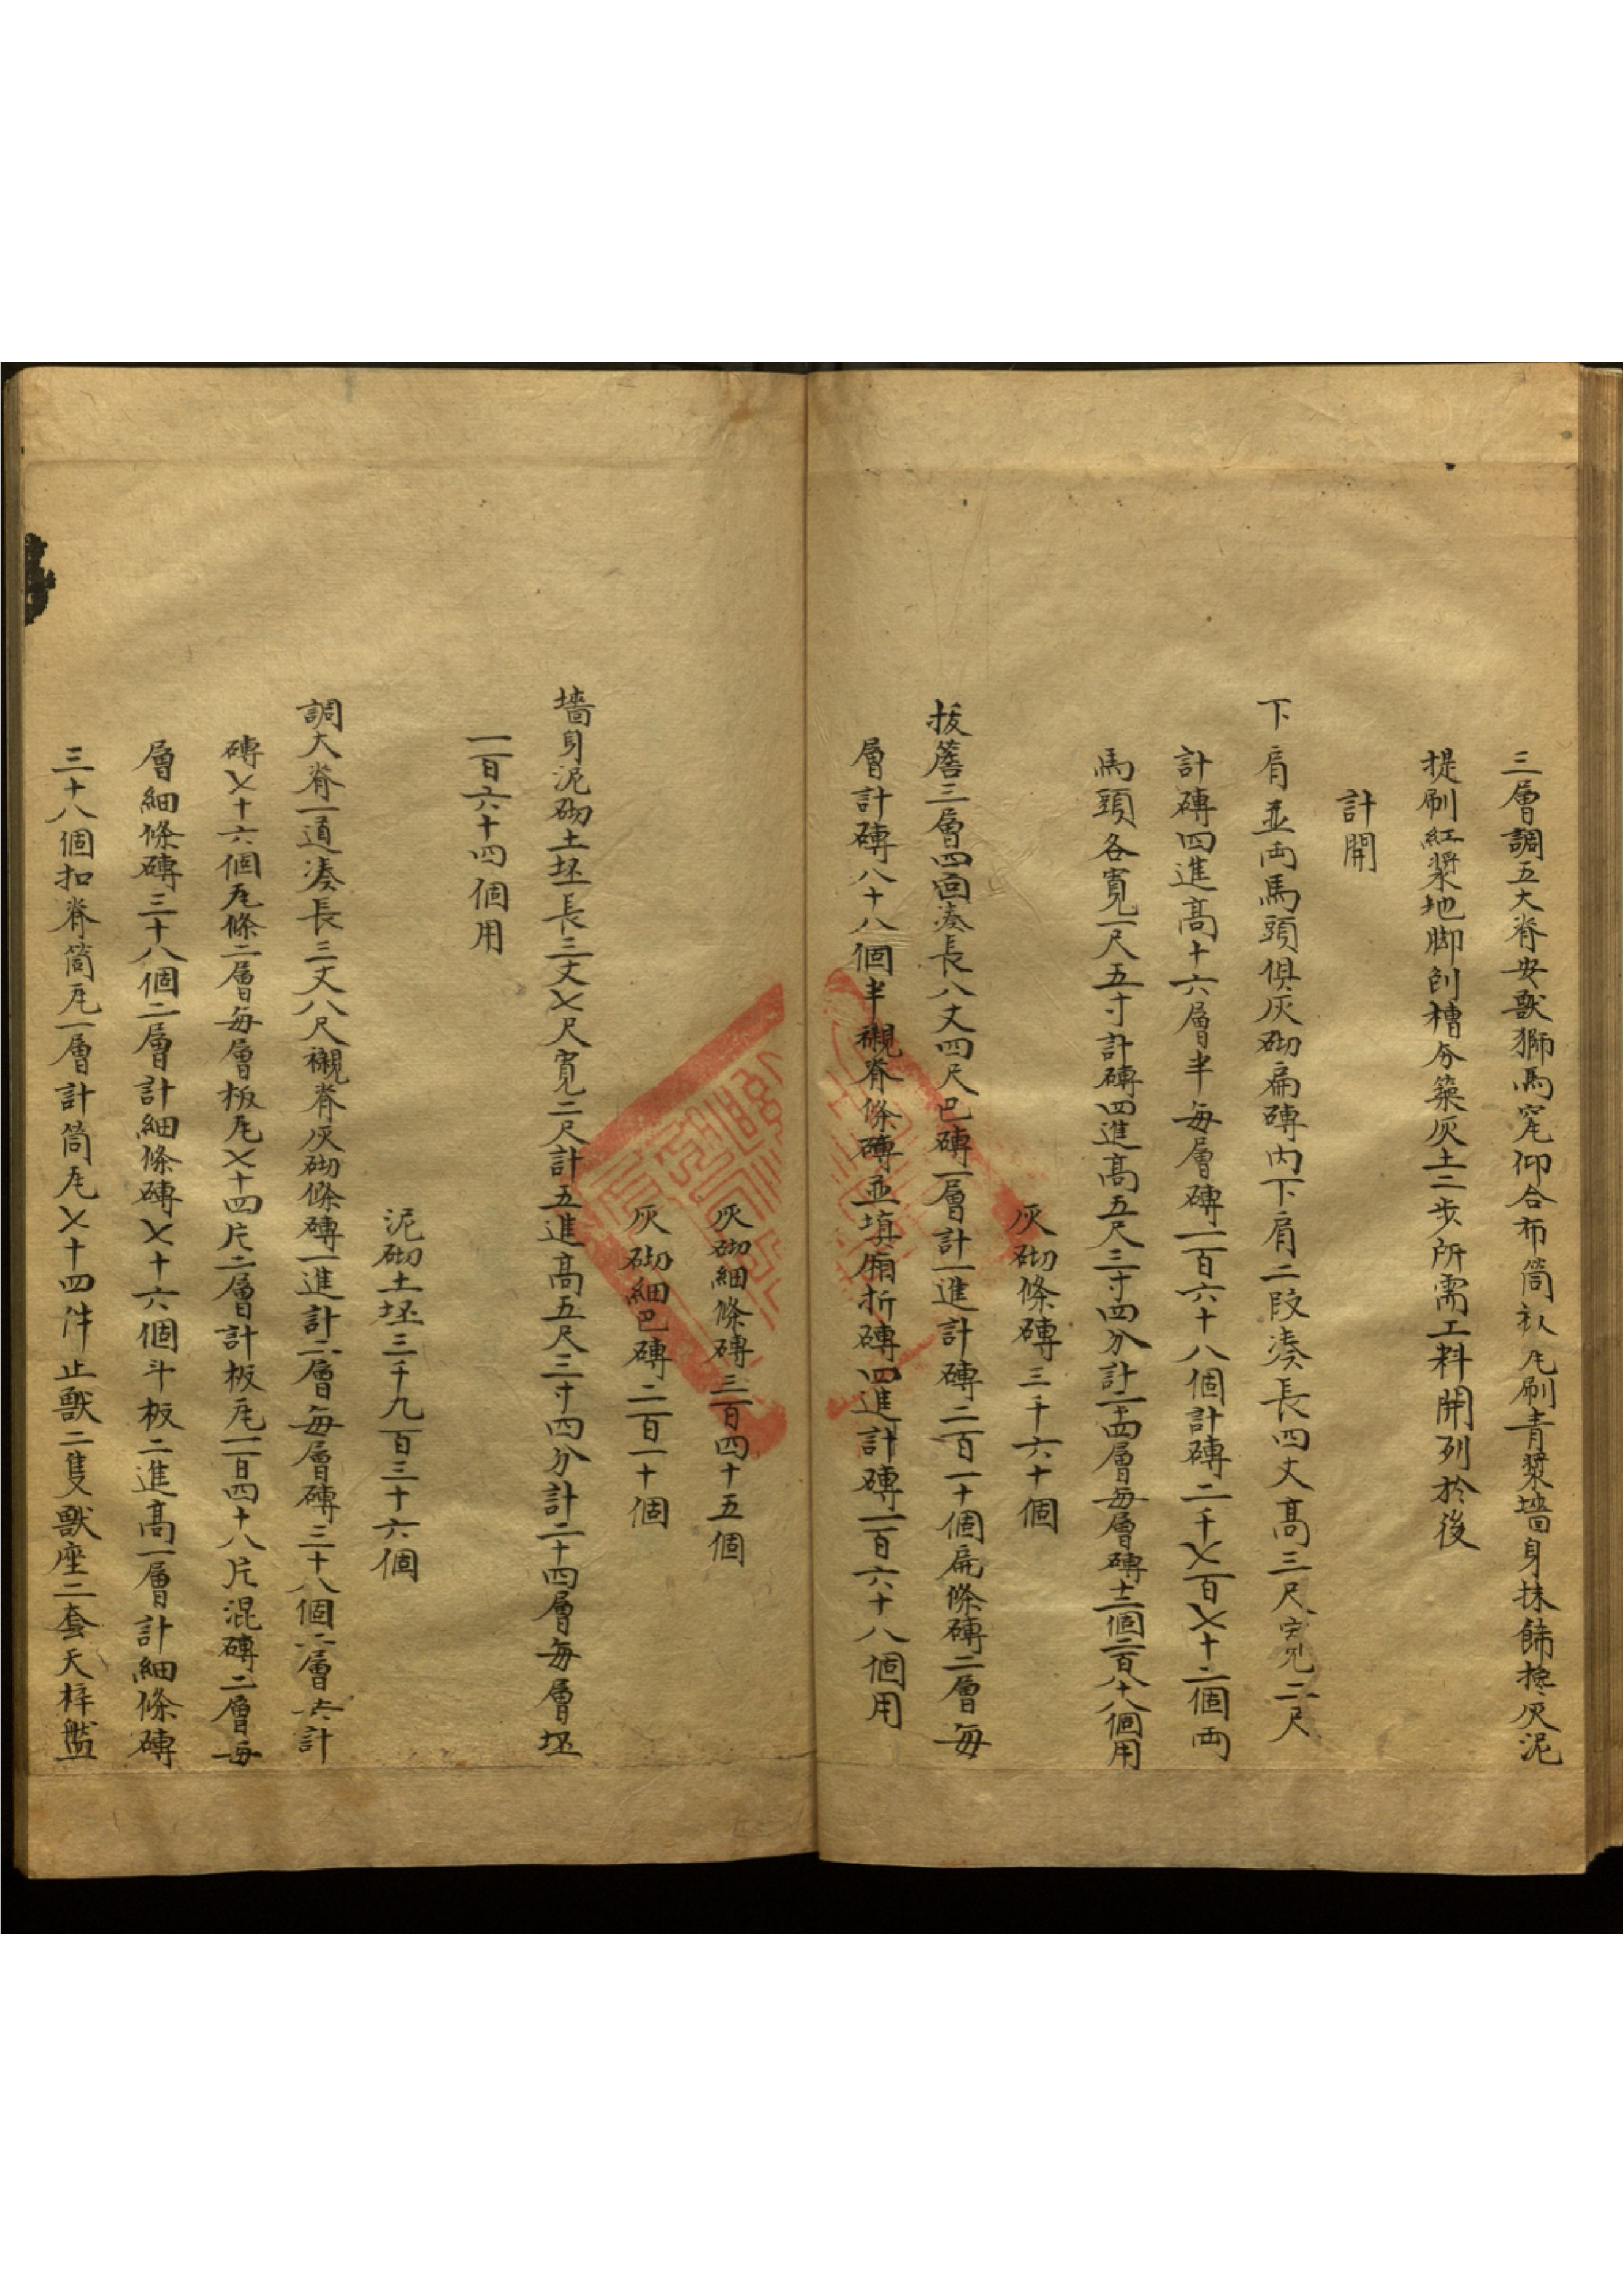 三層調五大脊安獸獅馬宽仰合布筒板瓦刷青漿墻身抹飾搀灰泥
提刷紅漿地脚刨槽夯築灰土二步所需工料開列於後
計開
下肩並両馬頭俱灰砌扁磚内下肩二段湊長四丈高三尺寬二尺
計磚四進高十六層半每層磚一百六十八個計磚二千七百七十二個両
馬頭各寬一尺五寸計磚四進高五尺三寸四分計二十四層每層磚十二個二百八十八個用
灰砌條磚三千六十個
拔簷三層四囬湊長八丈四尺巴磚一層計一進計磚二百一十個扁條磚二層每
層計磚八十八個半襯脊條磚並填廂折磚四進計磚一百六十八個用
灰砌細條磚三百四十五個
灰砌細巴磚二百一十個
墻身泥砌土坯長三丈七尺寬二尺計五進高五尺三寸四分計二十四層每層坯
一百六十四個用
泥砌土坯三千九百三十六個
調大脊一道湊長三丈八尺襯脊灰砌條磚一進計二層每層磚三十八個二層共計
磚七十六個瓦條二層每層板瓦七十四片二層計板瓦一百四十八片混磚二層每
層細條磚三十八個二層計細條磚七十六個斗板二進高一層計細條磚
三十八個扣脊筒瓦一層計筒瓦七十四件止獸二隻獸座二套天梓盤